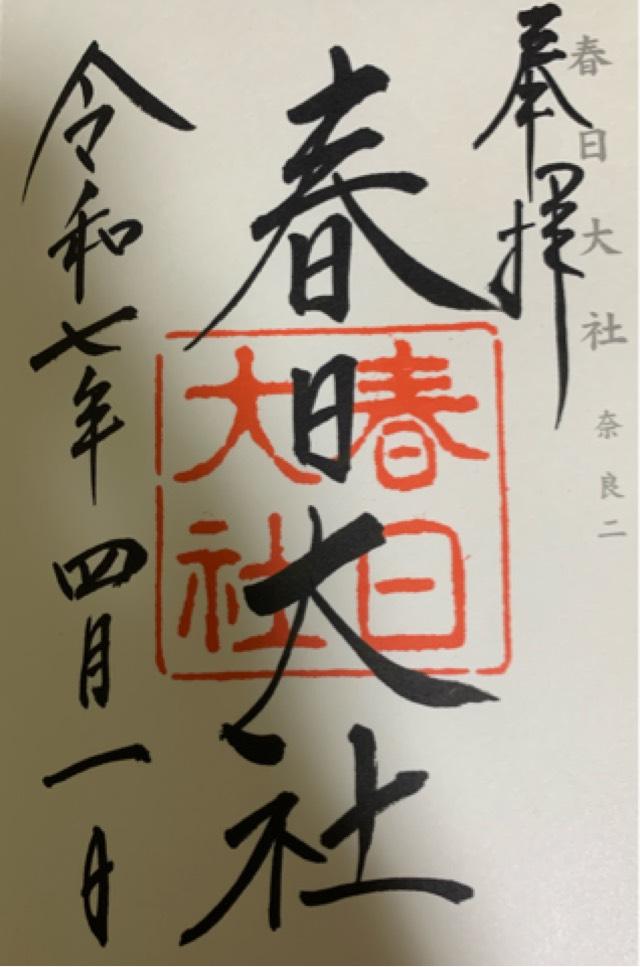 春日大社 奈良二
奉拝
春日大社
春日
大社
令和七年四月一日